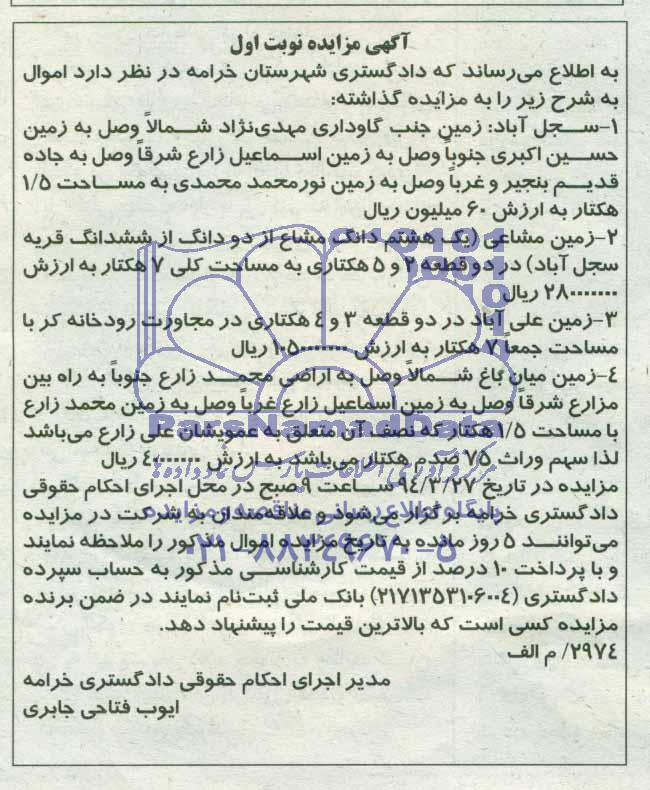 آگهی مزایده نوبت اول
به اطلاع می‌رساند که دادگستری شهرستان خرامه در نظر دارد اموال
به شرح زیر را به مزایده گذاشته:
۱-سجل آباد: زمین جنب گاوداری مهدی‌نژاد شمالاً وصل به زمین
حسین اکبری جنوباً وصل به زمین اسماعیل زارع شرقاً وصل به جاده
قدیم بنجیر و غرباً وصل به زمین نورمحمد محمدی به مساحت ۱/۵
هکتار به ارزش ۶۰ میلیون ریال
۲-زمین مشاعی (یک هشتم دانگ مشاع از دو دانگ از ششدانگ قریه
سجل آباد) در دو قطعه ۲ و ۵ هکتاری به مساحت کلی ۷ هکتار به ارزش
۲۸۰۰۰۰۰۰۰ ریال
۳-زمین علی آباد در دو قطعه ۳ و ۴ هکتاری در مجاورت رودخانه کر با
مساحت جمعاً ۷ هکتار به ارزش ۱۰۵۰۰۰۰۰۰۰ ریال
۴-زمین میان باغ شمالاً وصل به اراضی محمد زارع جنوباً به راه بین
مزارع شرقاً وصل به زمین اسماعیل زارع غرباً وصل به زمین محمد زارع
با مساحت ۱/۵ هکتار که نصف آن متعلق به عمویشان علی زارع می‌باشد
لذا سهم وراث ۷۵ صدم هکتار می‌باشد به ارزش ۴۰۰۰۰۰۰۰ ریال
مزایده در تاریخ ۹۴/۳/۲۷ ساعت ۹صبح در محل اجرای احکام حقوقی
دادگستری خرامه برگزار می‌شود و علاقه‌مندان به شرکت در مزایده
می‌توانند ۵ روز مانده به تاریخ مزایده اموال مذکور را ملاحظه نمایند
و با پرداخت ۱۰ درصد از قیمت کارشناسی مذکور به حساب سپرده
دادگستری (۲۱۷۱۳۵۳۱۰۶۰۰۴) بانک ملی ثبت‌نام نمایند در ضمن برنده
مزایده کسی است که بالاترین قیمت را پیشنهاد دهد.
۲۹۷۴/ م الف
مدیر اجرای احکام حقوقی دادگستری خرامه
ایوب فتاحی جابری
ParsNamadData
پایگاه اطلاع رسانی مناقصه و مزایده
۰۲۱-۸۸۳۴۹۶۷۰-۵